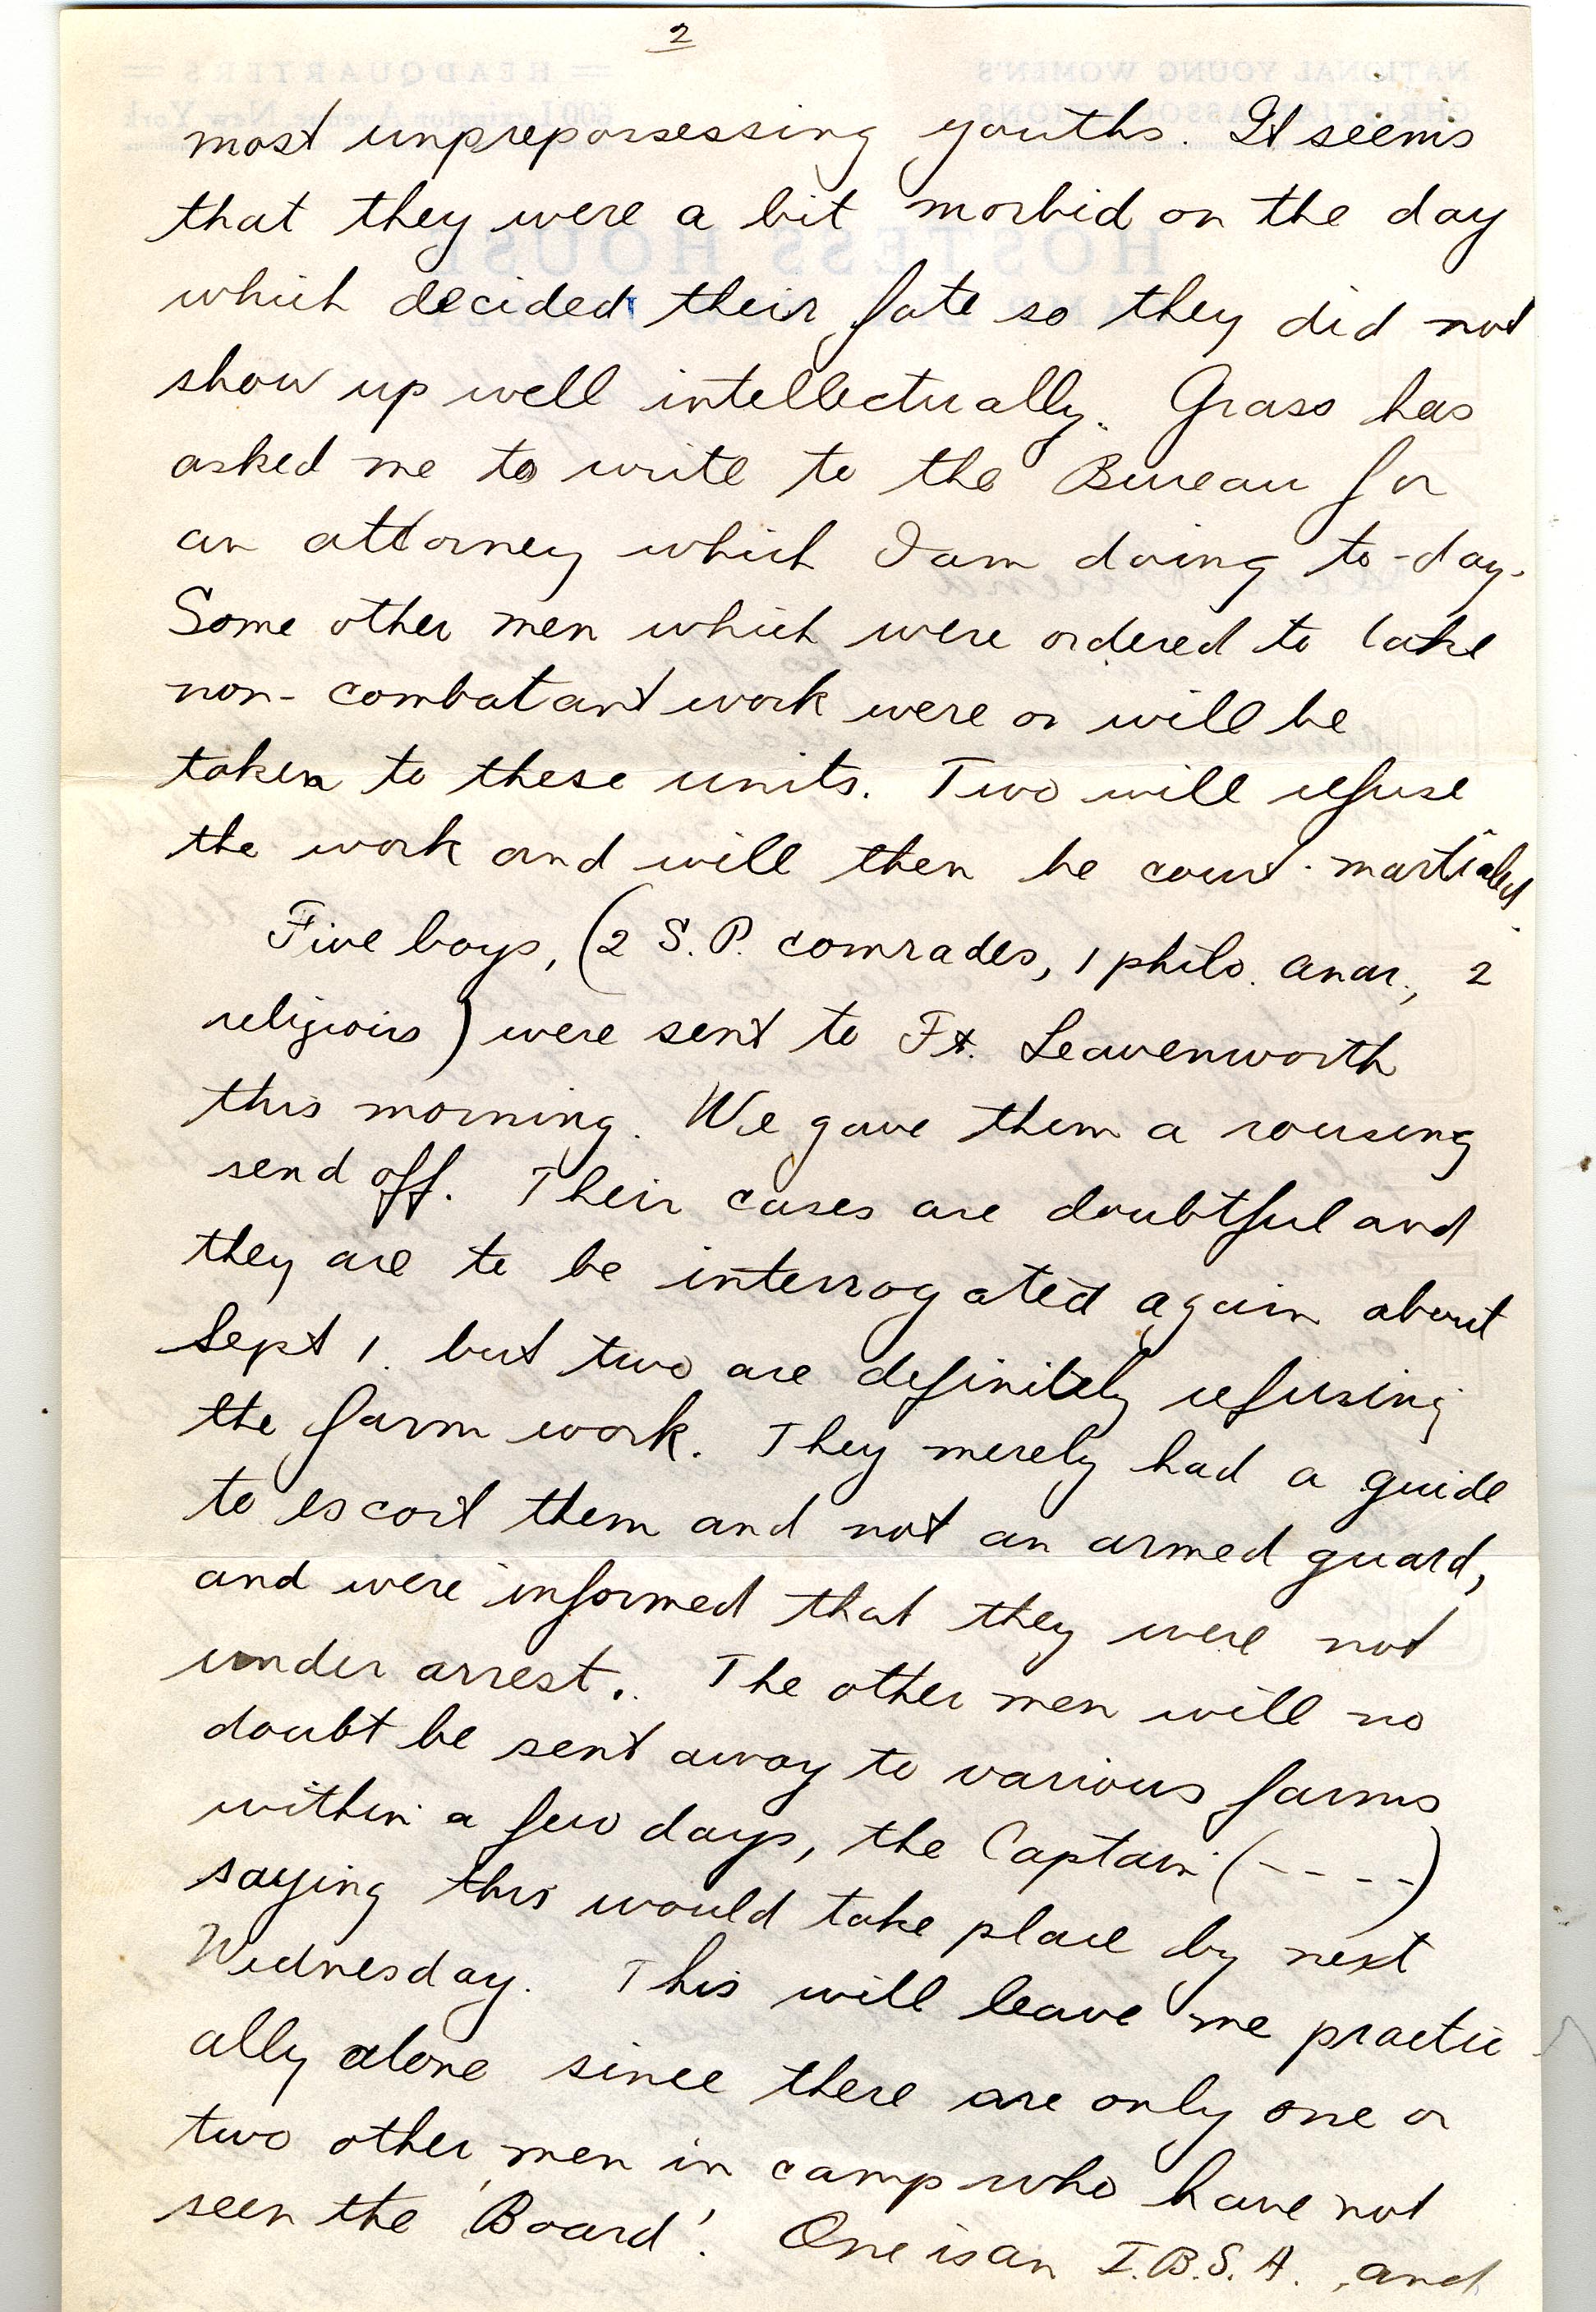 2
most unprepossessing youths. It seems
that they were a bit morbid on the day
which decided their fate so they did not
show up well intellectually. Graso has
asked me to write to the Bureau for
an attorney which I am doing to-day.
Some other men which were ordered to take
non-combatant work were or will be
taken to these units. Two will refuse
the work and will then be court-martialed.
Five boys, (2 S.P. comrades, 1 philo. anar., 2
religious) were sent to Ft. Leavenworth
this morning. We gave them a rousing
send off. Their cases are doubtful and
they are to be interrogated again about
Sept 1. but two are definitely refusing
the farm work. They merely had a guide
to escort them and not an armed guard,
and were informed that they were not
under arrest. The other men will no
doubt be sent away to various farms
within a few days, the Captain (- - - -)
saying this would take place by next
Wednesday. This will leave me practic
ally alone since there are only one or
two other men in camp who have not
seen the 'Board'. One is an I.B.S.A., and